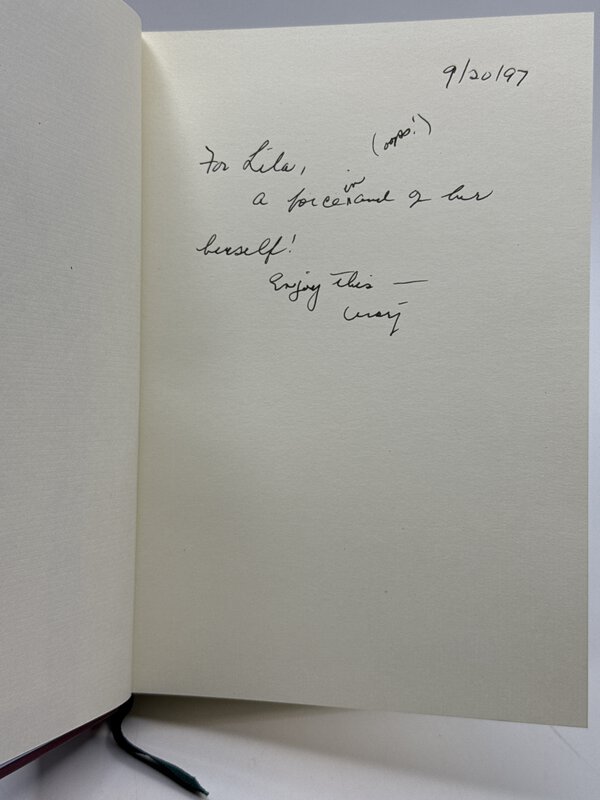 9/20/97
(oops!)
For Lila,
in
a force and of her
herself!
Enjoy this —